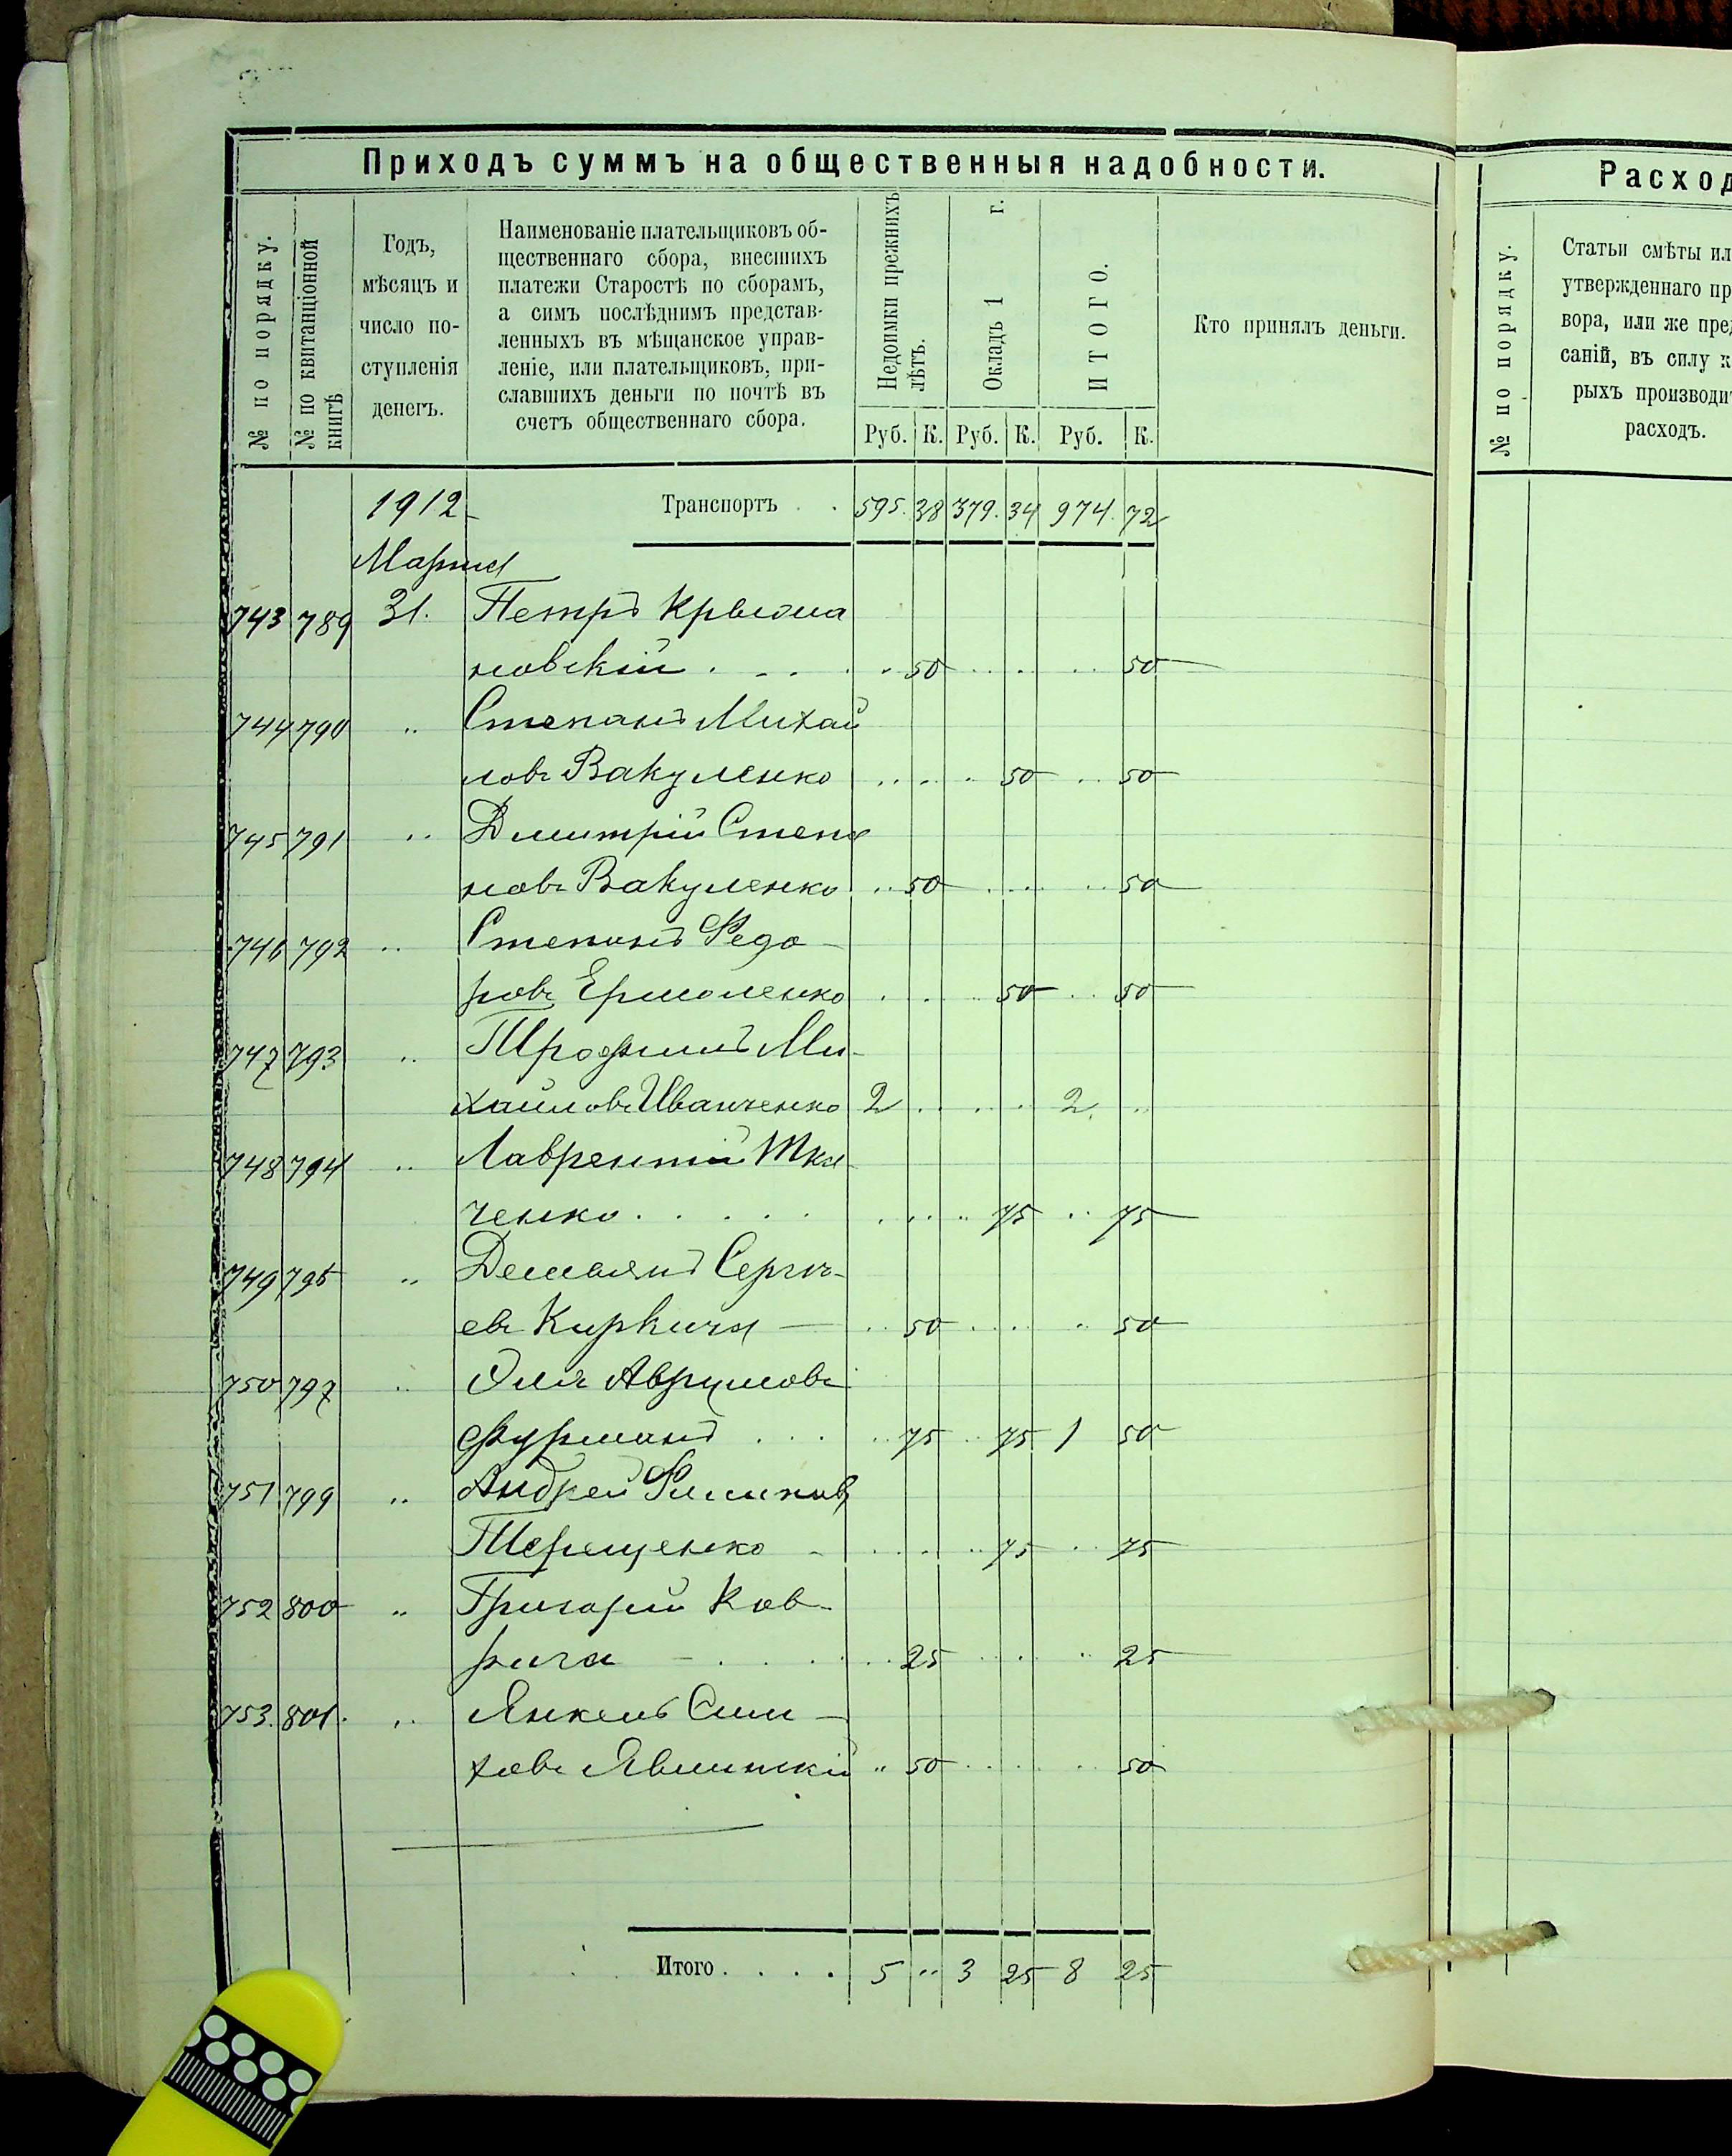 Приходъ суммъ на общественныя надобности.
№ по порядку.
№ по квитанціонной книгѣ
Годъ,
мѣсяцъ и
число по-
ступленія
денегъ.
Наименованіе плательщиковъ об-
щественнаго сбора, внесшихъ
платежи Старостѣ по сборамъ,
а симъ послѣднимъ представ-
ленныхъ въ мѣщанское управ-
леніе, или плательщиковъ, при-
славшихъ деньги по почтѣ въ
счетъ общественнаго сбора.
Недоимки прежнихъ лѣтъ.
Окладъ 1 г.
ИТОГО.
Кто принялъ деньги.
Руб. К. Руб. К. Руб. К.
1912 Транспортъ 595. 38 379. 34 974. 72
Марта
743 789 31. Петръ
новскій 50 50
744 790 " Степанъ Михай
ловъ Вакуленко 50 50
745 791 " Дмитрій Степа
новъ Вакуленко 50 50
746 792 " Степанъ Федо-
ровъ Ермоленко 50 50
747 793 " Трофимъ Ми-
хайловъ Иванченко 2 2
748 794 " Лаврентій Тка-
ченко 75 75
749 795 " Демьянъ Сергѣ-
евъ Киркича 50 50
750 797 " Эля Аврумовъ
Фурманъ 75 75 1 50
751 799 " Андрей
Терещенко 75 75
752 800 " Григорій Ков-
рига 25 25
753. 801. " Янкель Сим-
ховъ 50 50
Итого 5 " 3 25 8 25
Расход
№ по порядку.
Статьи смѣты ил
утвержденнаго пр
вора, или же пред
саній, въ силу к
рыхъ производит
расходъ.